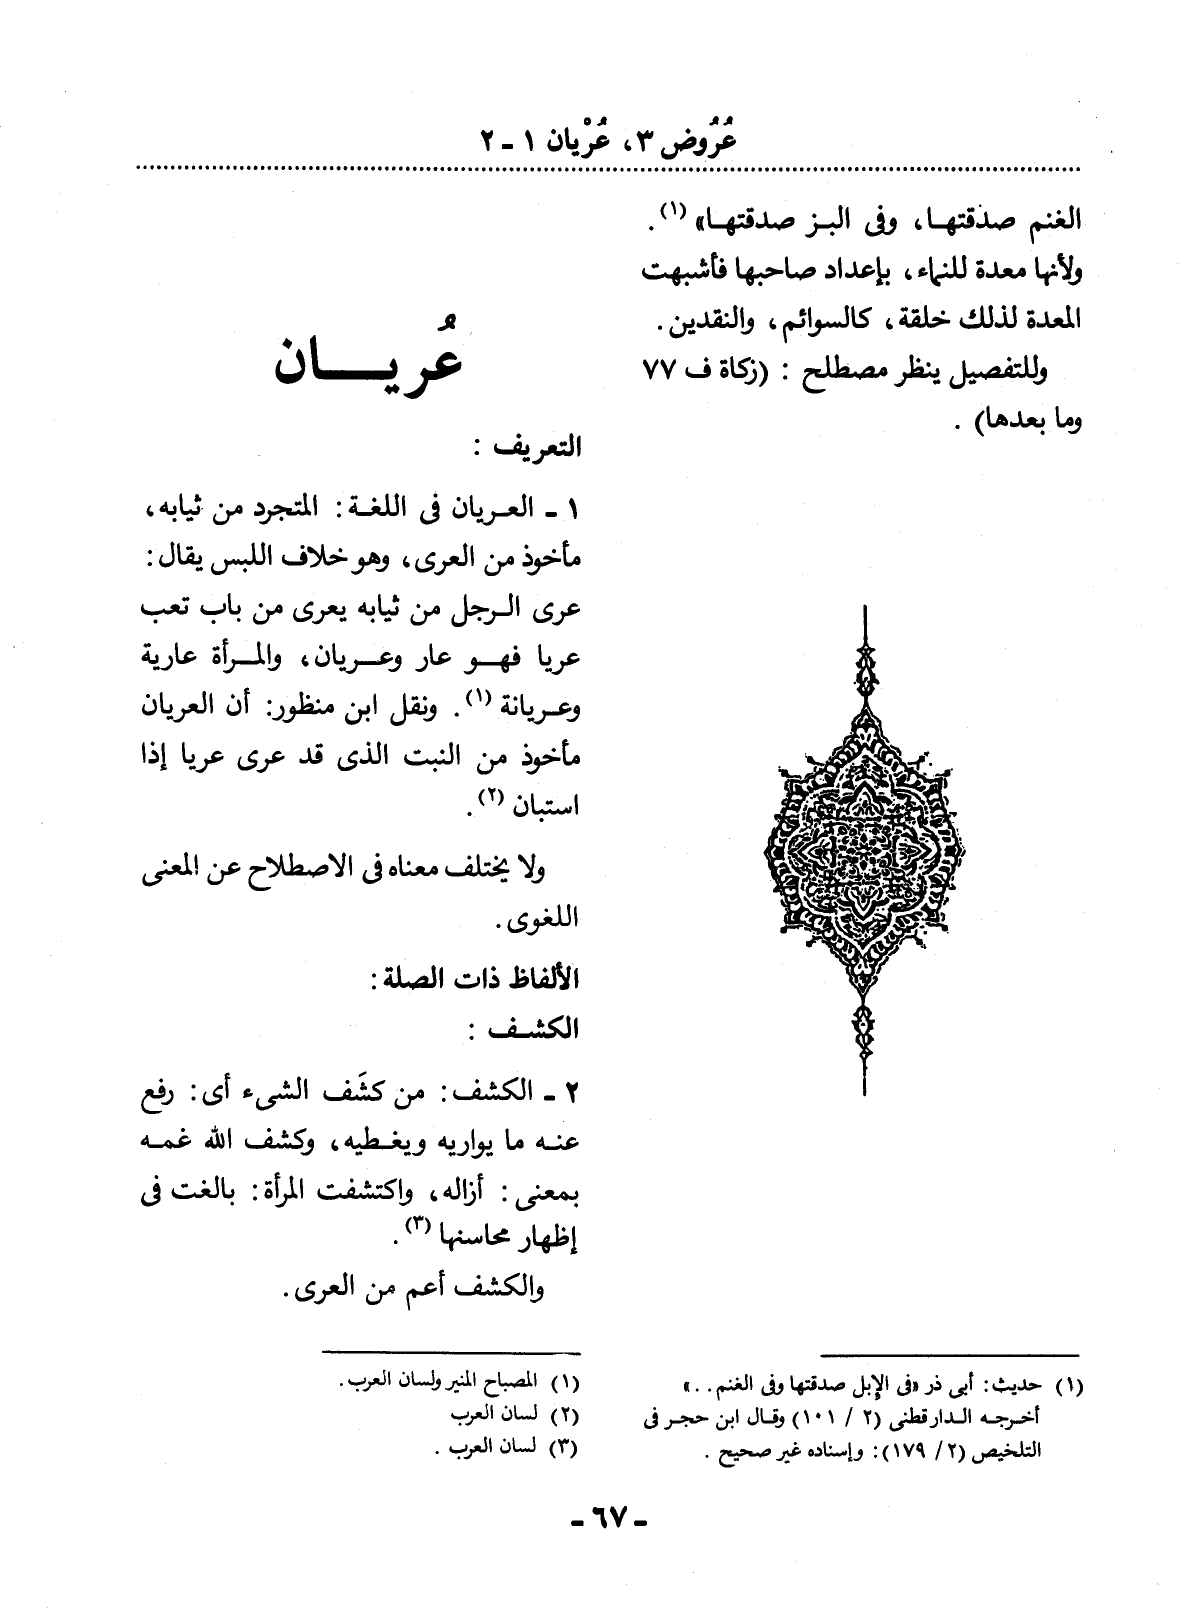 عُرُوض ٣، عُرْيان ١ - ٢
الغنم صدقتهـا، وفى البـز صدقتهـا» (١).
ولأنها معدة للنماء، بإعداد صاحبها فأشبهت
المعدة لذلك خلقة، كالسوائم، والنقدين.
وللتفصيل ينظر مصطلح : (زكاة ف ٧٧
وما بعدها) .
(١) حديث: أبى ذر «فى الإبل صدقتها وفى الغنم. .»
أخـرجـه الـدارقطنى (٢ / ١٠١) وقـال ابن حجـر فى
التلخيص (٢/ ١٧٩): وإسناده غير صحيح .
عُريـــان
التعريف :
١ - العـريان فى اللغـة: المتجرد من ثيابه،
مأخوذ من العرى، وهو خلاف اللبس يقال:
عرى الـرجل من ثيابه يعرى من باب تعب
عريا فهـو عار وعـريان، والمـرأة عارية
وعـريانة (١). ونقل ابن منظور: أن العريان
مأخوذ من النبت الذى قد عرى عريا إذا
استبان (٢).
ولا يختلف معناه فى الاصطلاح عن المعنى
اللغوى.
الألفاظ ذات الصلة:
الكشـف :
٢ - الكشف: من كشَف الشىء أى: رفع
عنـه ما يواريه ويغـطيه، وكشف الله غمـه
بمعنى: أزاله، واكتشفت المرأة: بالغت فى
إظهار محاسنها (٣).
والكشف أعم من العرى.
(١) المصباح المنير ولسان العرب.
(٢) لسان العرب
(٣) لسان العرب .
- ٦٧ -